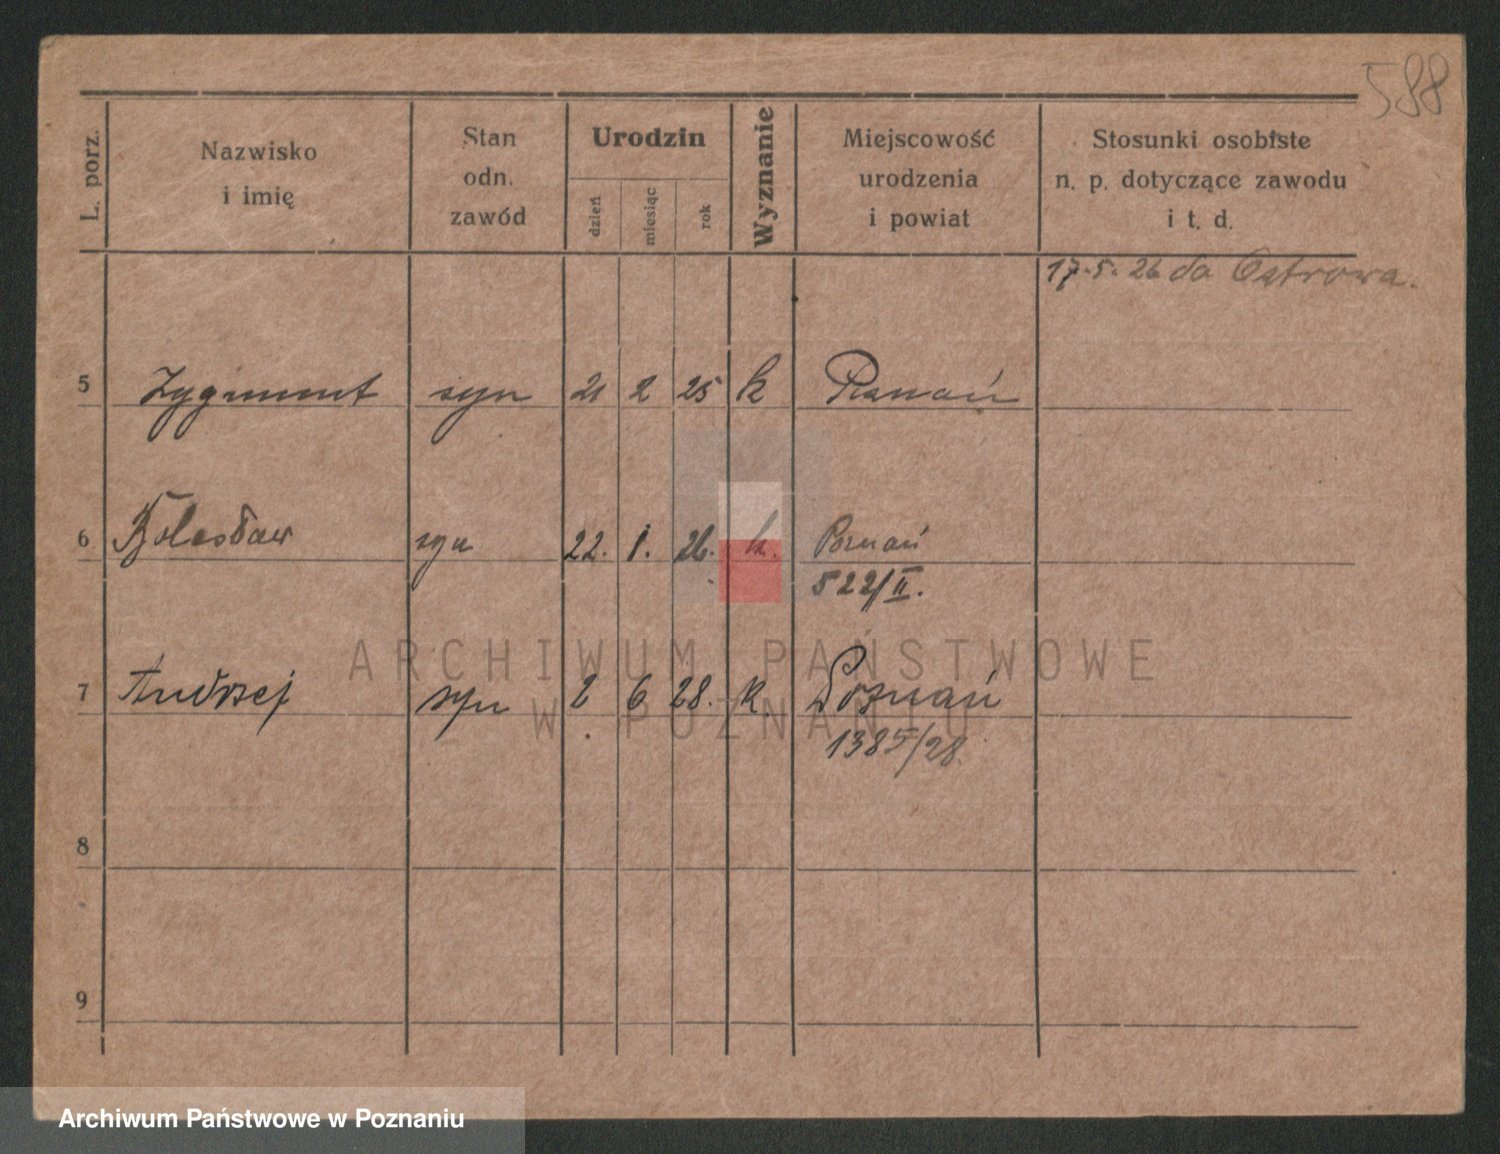 588
L. porz.
Nazwisko
i imię
Stan
odn.
zawód
Urodzin
dzień
miesiąc
rok
Wyznanie
Miejscowość
urodzenia
i powiat
Stosunki osobiste
n. p. dotyczące zawodu
i t. d.
17.5.26 do Ostrowa.
5 Zygmunt syn 21 2 25 k Poznań
6 Bolesław syn 22. 1. 26. k. Poznań
522/II.
ARCHIWUM PAŃSTWOWE
7 Andrzej syn 2 6 28. k. Poznań
W POZNANIU
1385/28.
8
9
Archiwum Państwowe w Poznaniu